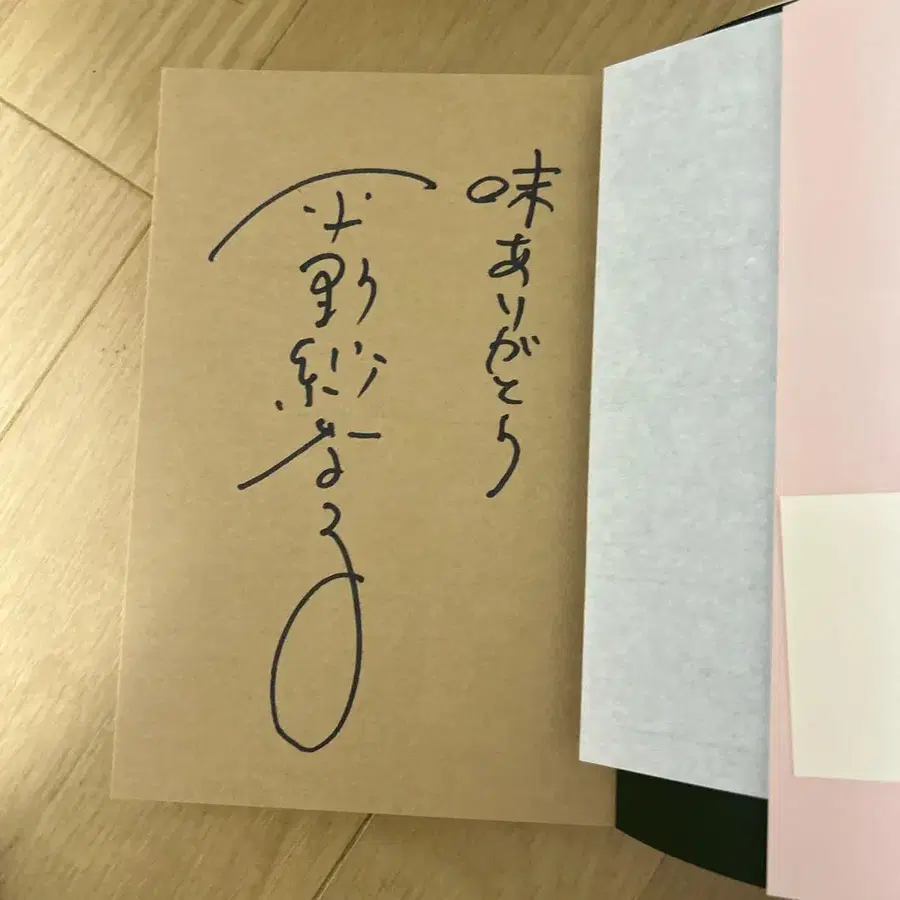 味ありがとう
平野紗季子